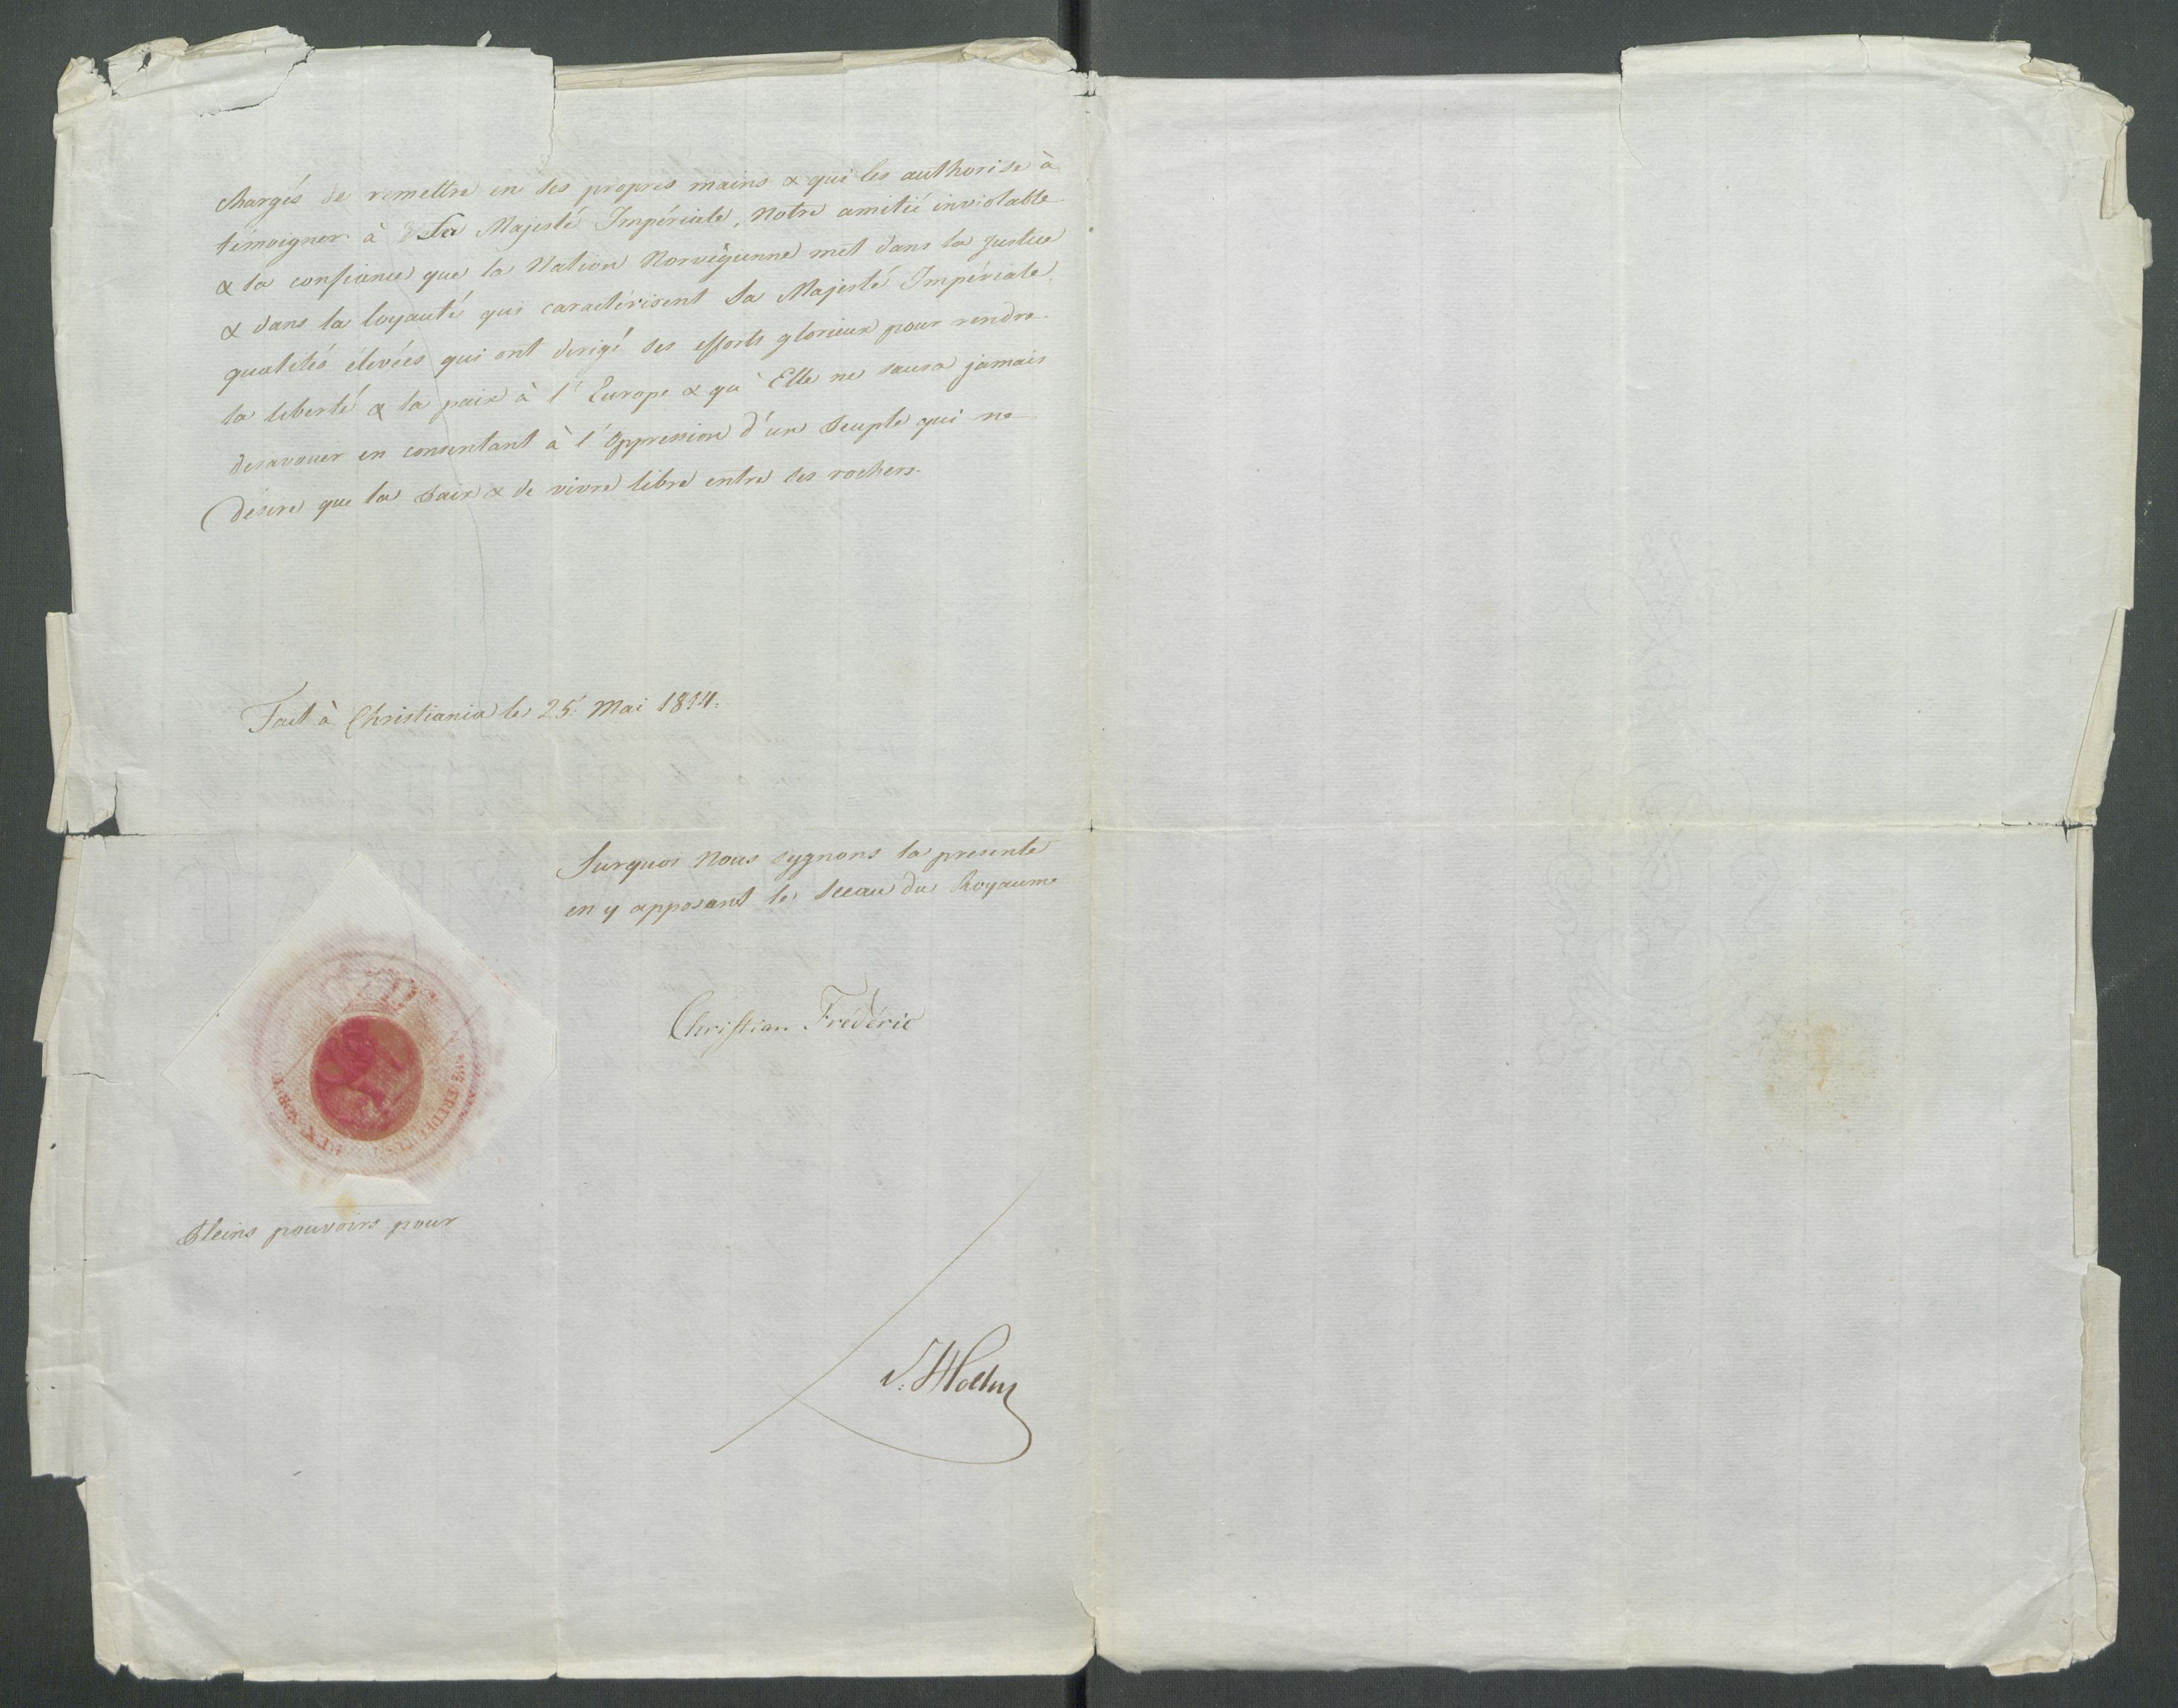 chargés de remettre en ses propres mains & qui les authorise à
témoigner à Sa Majesté Impériale, Notre amitié inviolable
& la confiance que la Nation Norvégienne met dans la Justice
& dans la loyauté qui caractérisent Sa Majesté Impériale,
qualités élevées qui ont dirigé ses efforts glorieux pour rendre
la liberté & la paix à l'Europe & qu'Elle ne saura jamais
desavouer en consentant à l'Oppression d'un Peuple qui ne
désire que la Paix & de vivre libre entre ses rochers.
Fait à Christiania le 25. Mai 1814.
Surquoi Nous sygnons la presente
en y apposant le Sceau du Royaume
Christian Frédéric
REX NOR
Pleins pouvoirs pour
v: Holten